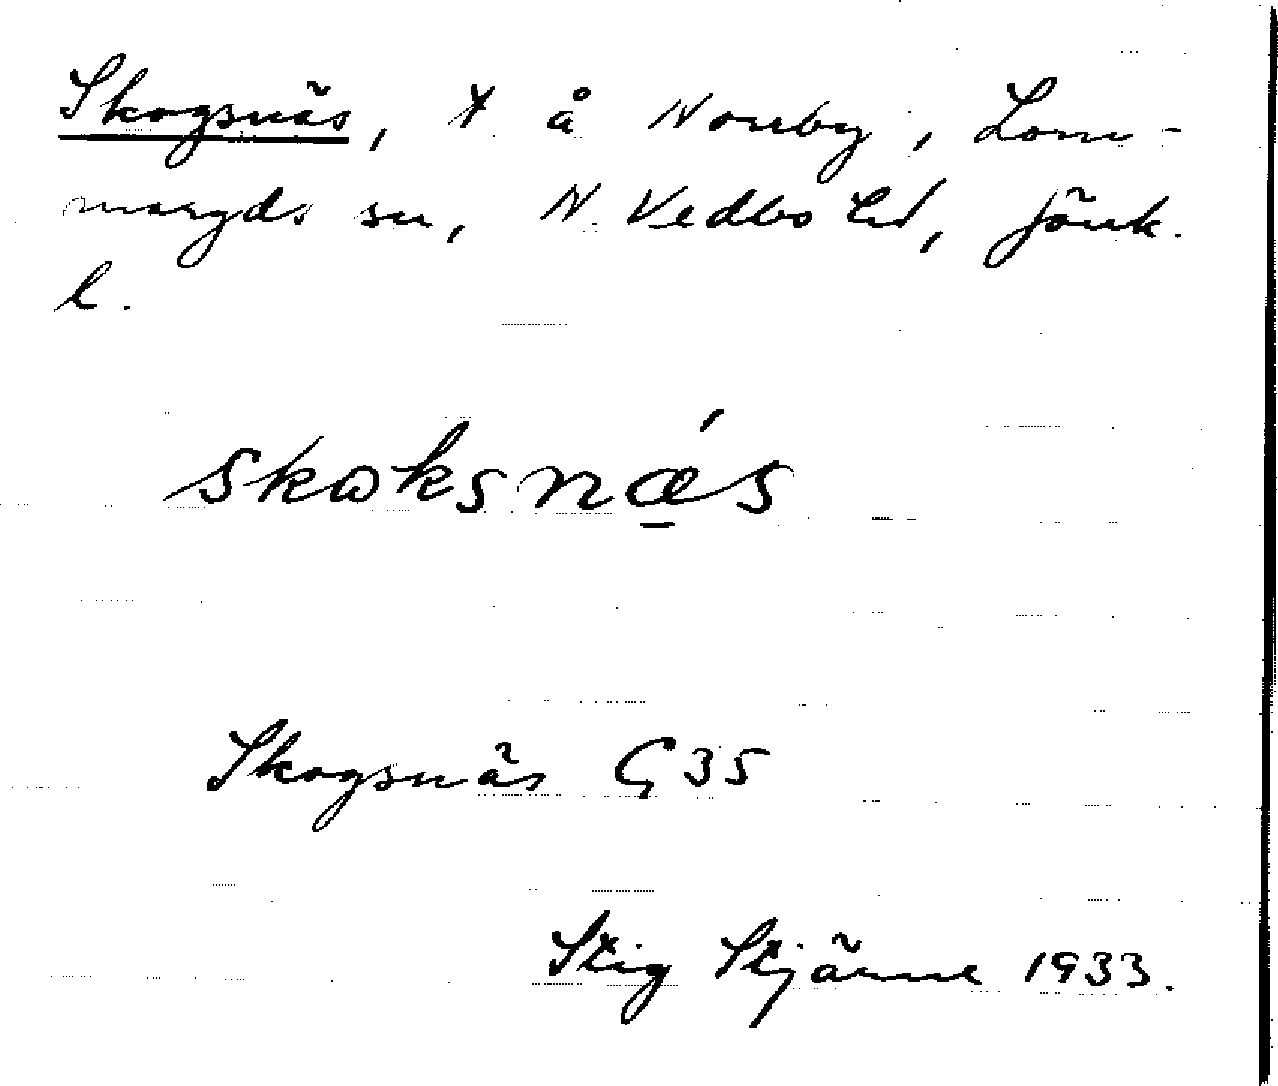 Skogsnäs, x å Norrby, Lom-
maryds sn, N. Vedbo hd, Jönk.
l.
skɷksnǽ̱s
Skogsnäs G 35
Stig Stjärne 1933.